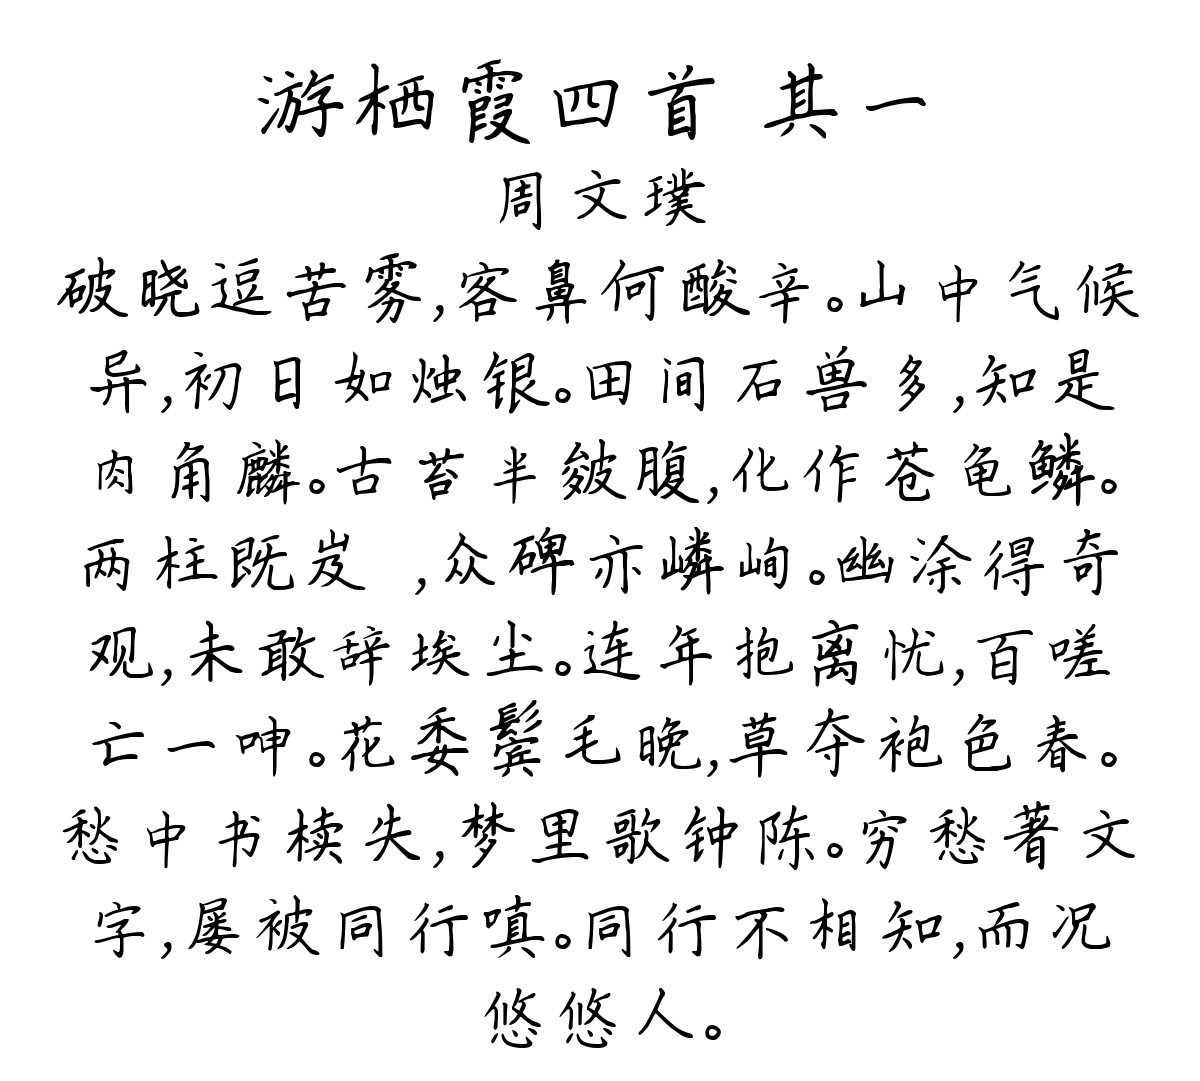 游栖霞四首 其一
周文璞
破晓逗苦雾,客鼻何酸辛。山中气候
异,初日如烛银。田间石兽多,知是
肉角麟。古苔半皴腹,化作苍龟鳞。
两柱既岌 ,众碑亦嶙峋。幽涂得奇
观,未敢辞埃尘。连年抱离忧,百嗟
亡一呻。花委鬓毛晚,草夺袍色春。
愁中书椟失,梦里歌钟陈。穷愁著文
字,屡被同行嗔。同行不相知,而况
悠悠人。